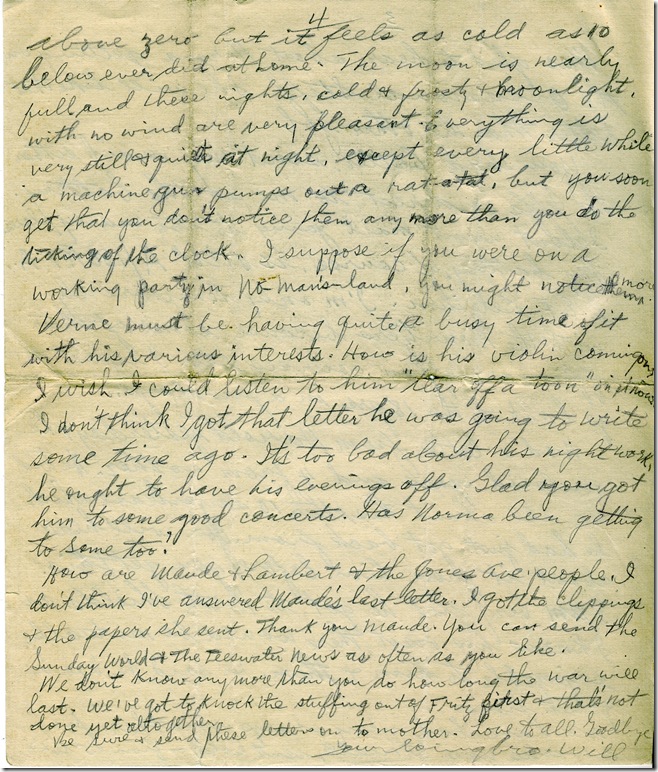 4
above zero but it feels as cold as 10
below ever did at home. The moon is nearly
full and these nights, cold & frosty & moonlight,
with no wind are very pleasant. Everything is
very still & quiet at night, except every little while
a machine gun pumps out a rat-a-tat, but you soon
get that you don't notice them any more than you do the
ticking of the clock. I suppose if you were on a
working party in No-mans-land, you might notice them more.
Verne must be having quite a busy time of it
with his various interests. How is his violin coming on?
I wish I could listen to him "tear off a toon" on it now.
I don't think I got that letter he was going to write
some time ago. It's too bad about his night work,
he ought to have his evenings off. Glad you got
him to some good concerts. Has Norma been getting
to some too?
How are Maude & Lambert & the Jones Ave. people. I
don't think I've answered Maude's last letter. I got the clippings
& the papers she sent. Thank you Maude. You can send the
Sunday World & The Teeswater News as often as you like.
We don't know any more than you do how long the war will
last. We've got to knock the stuffing out of Fritz first & that's not
done yet altogether.
Be sure & send these letters on to mother. Love to all. Goodbye
Your loving bro. Will